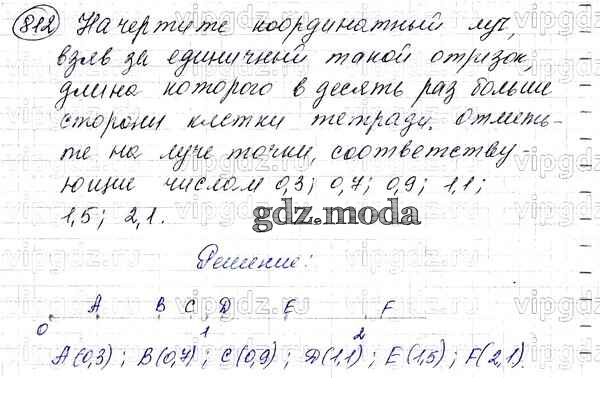 812 Начертите координатный луч,
взяв за единичный такой отрезок,
длина которого в десять раз больше
стороны клетки тетради. Отметь-
те на луче точки, соответству-
ющие числам 0,3; 0,7; 0,9; 1,1;
1,5; 2,1.
gdz.moda
Решение:
A B C D E F
0 1 2
A(0,3); B(0,7); C(0,9); D(1,1); E(1,5); F(2,1).
vipgdz.ru